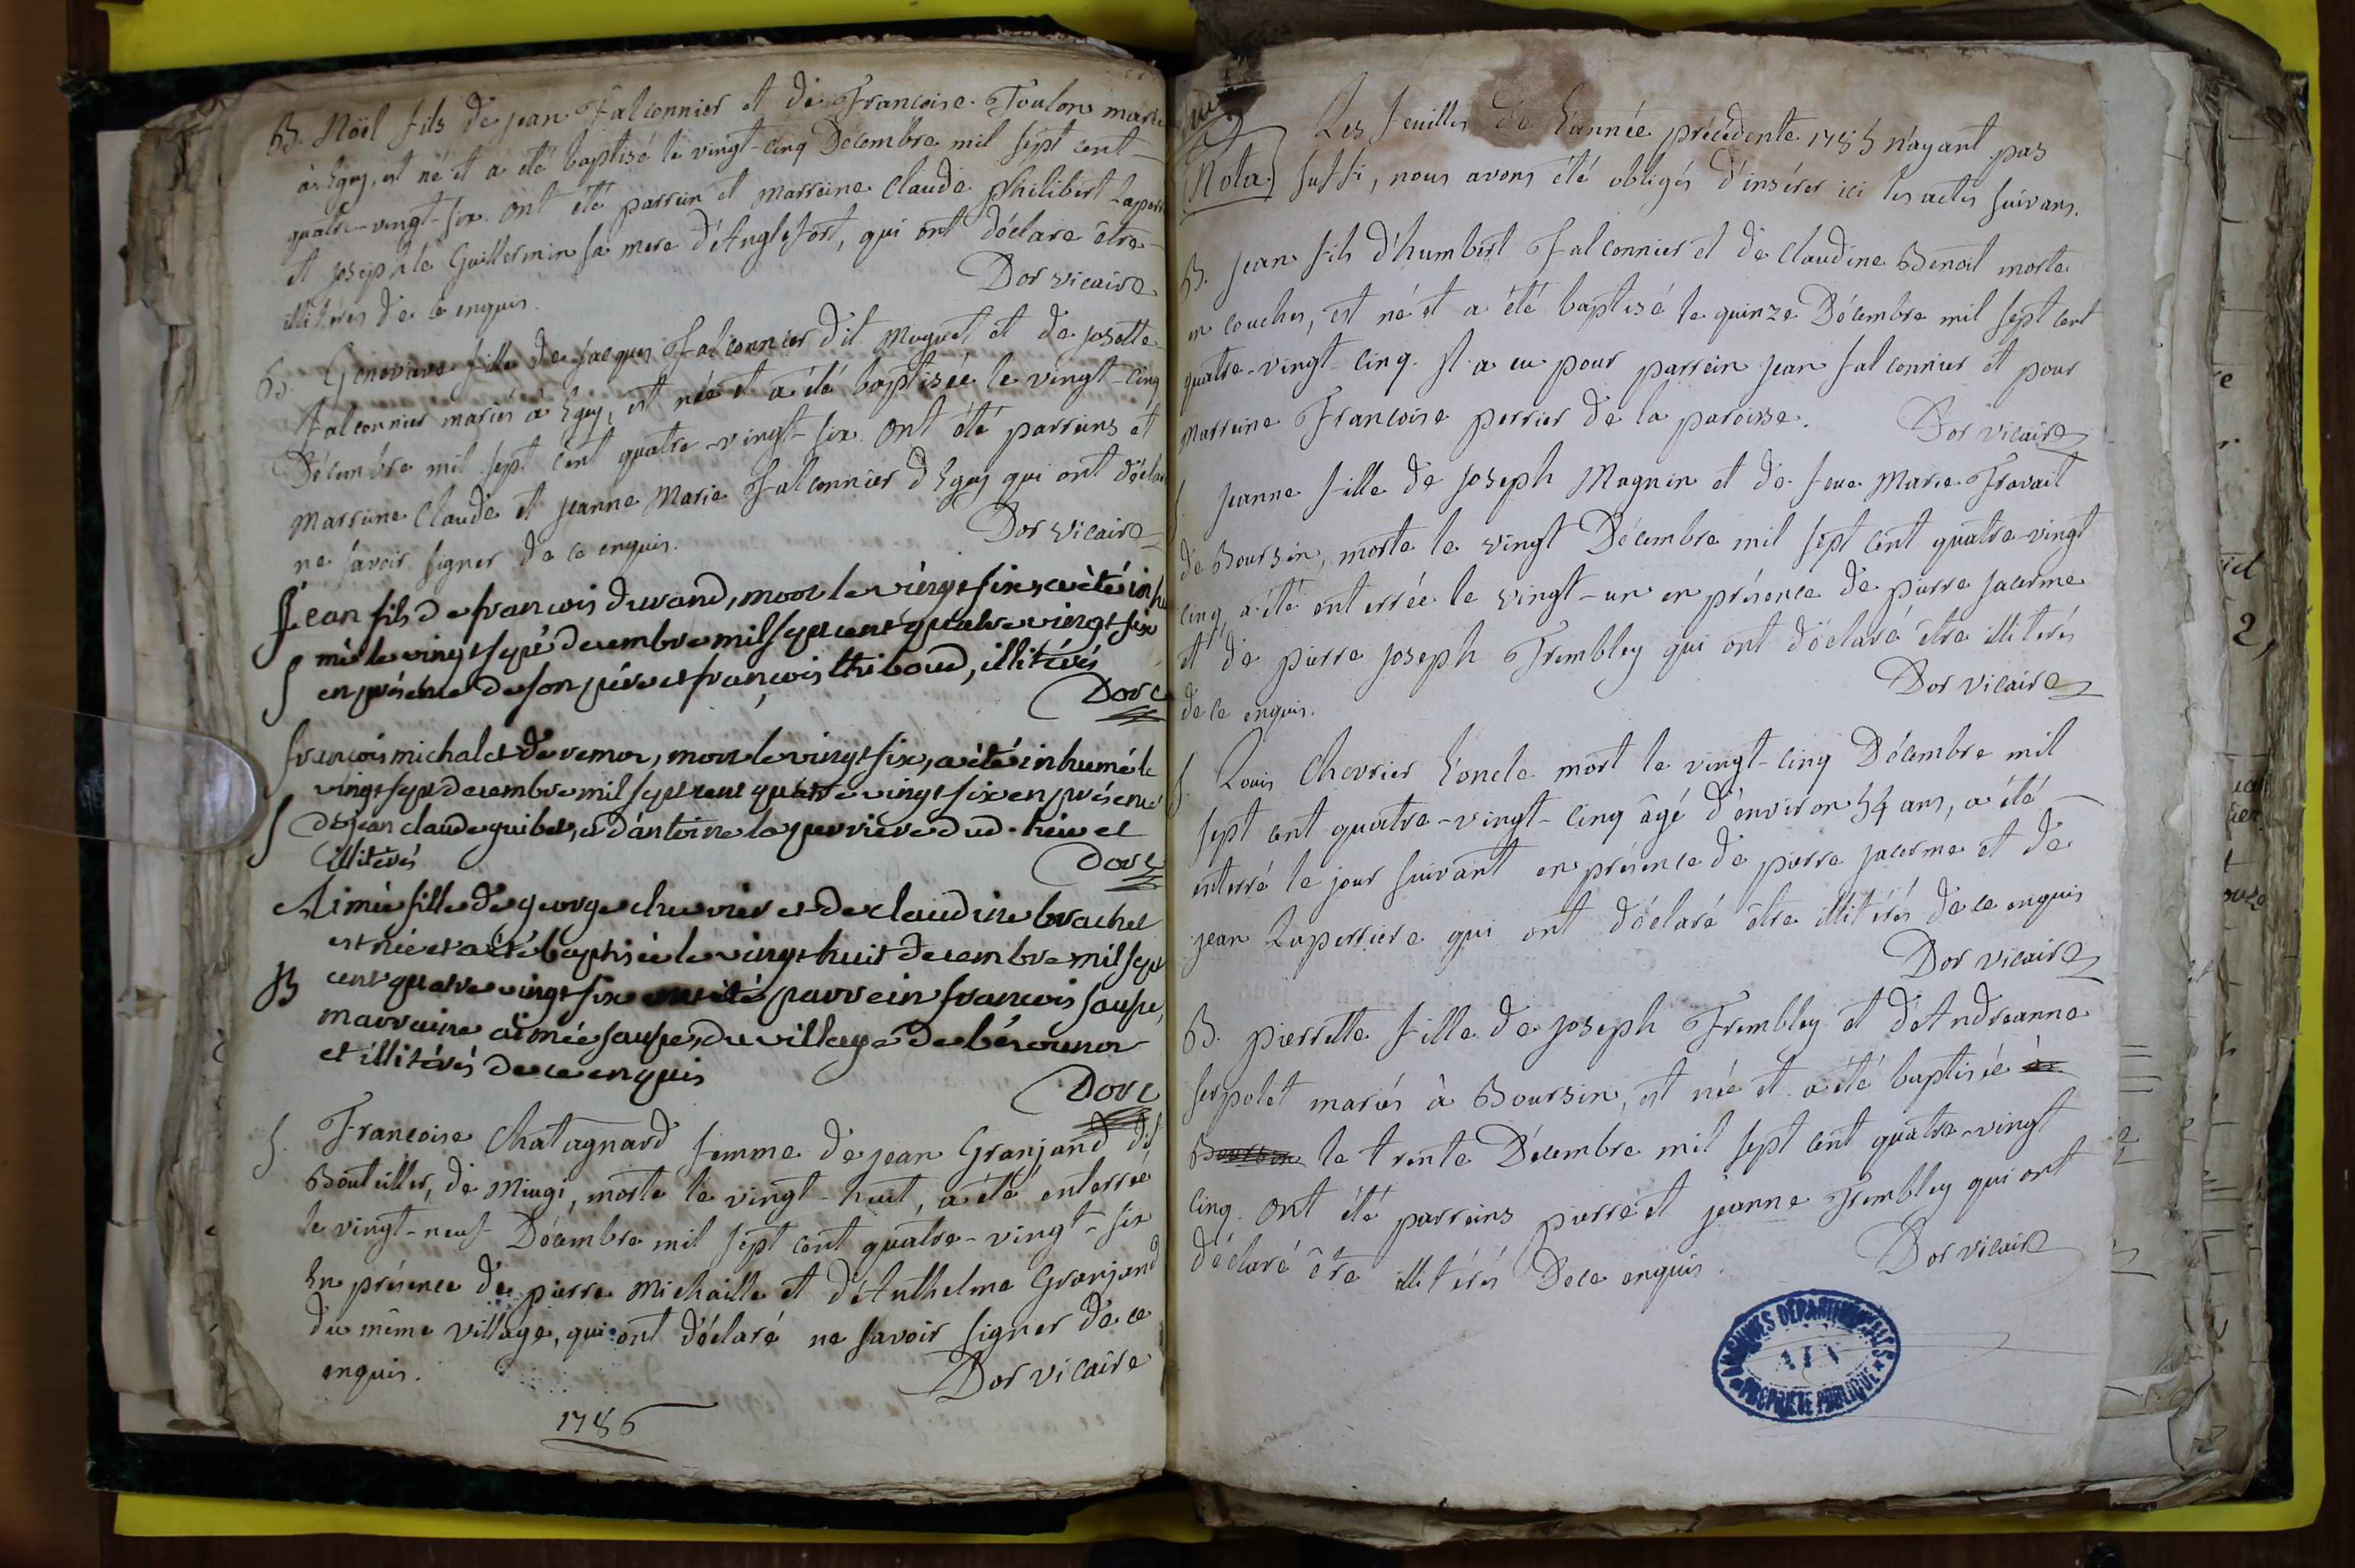 B. Nöel fils de jean Falconnier et de Francoise Toulon marié
à Egey, est né et a été baptisé le vingt-cinq Décembre mil sept cent
quatre-vingt-six. ont été parrein et marreine claude philibert Laper
et josephte Guillermin sa mere d'Anglefort, qui ont déclaré être
illiterés de ce enquis.
Dor vicaire
B. Genevieve fille de jacques Falconnier dit Muguet et de josette
Falconnier mariés à Egey, est née et a été baptisée le vingt-cinq
Décembre mil sept cent quatre-vingt-six. ont été parreins et
marreine claude et jeanne Marie Falconnier d'Egey qui ont décla
ne savoir signer de ce enquis.
Dor vicaire
Jean fils de francois durand, mort le vingt six, a été inhu
mé le vingt sept decembre mil sept cent quatre vingt six
S en présence de son pére et françois thiboud, illitérés
Dor c
françois michalet de vemor, mort le vingt six, a été inhumé le
vingt sept decembre mil sept cent quatre vingt six en présence
S de jean claude guibet, et d'antoine la perriere dud. lieu et
illitérés
Dor c
Aimée fille de george chevrier et de claudine brachet
est née et a été baptisée le vingt huit decembre mil sept
B cent quatre vingt six ont été parrein francois saupe,
marraine aimée saupe, du village de
et illitérés de ce enquis
Dor c
S. Francoise Chatagnard femme de jean Granjand dit
Bouteiller, de Miugi, morte le vingt-huit, a été enterrée
le vingt-neuf Décembre mil sept cent quatre-vingt-six
En présence de pierre Michaille et d'Anthelme Granjand
du même village, qui ont déclaré ne savoir signer de ce
enquis.
Dor vicaire
1786
Les feuilles de l'année précédente 1785 n'ayant pas
Nota suffi, nous avons été obligés d'insérer ici les actes suivans.
B. jean fils d'humbert Falconnier et de claudine Benoit morte
en couches, est né et a été baptisé le quinze Décembre mil sept cent
quatre-vingt-cinq. il a eu pour parrein jean falconnier et pour
marreine Francoise perrier de la paroisse.
Dor vicaire
S. jeanne fille de joseph Magnin et de feue Marie Travail
de Boursin, morte le vingt Décembre mil sept cent quatre-vingt
cinq, a été enterrée le vingt-un en présence de pierre jacerme
et de pierre joseph Trembley qui ont déclaré être illiterés
de ce enquis.
Dor vicaire
S. Louis Chevrier L'oncle mort le vingt-cinq Décembre mil
sept cent quatre-vingt-cinq âgé d'environ 54 ans, a été
enterré le jour suivant en présence de pierre jacerme et de
jean Laperriere qui ont déclaré être illiterés de ce enquis
Dor vicaire
B. pierrette fille de joseph Trembley et d'Andreanne
serpolet mariés à Boursin, est née et a été baptisée à
Boursin le trente Décembre mil sept cent quatre-vingt
cinq. ont été parreins pierre et jeanne Trembley qui ont
déclaré être illiterés De ce enquis.
Dor vicaire
ARCHIVES DÉPARTEMENTALES
AIN
PROPRIÉTÉ PUBLIQUE